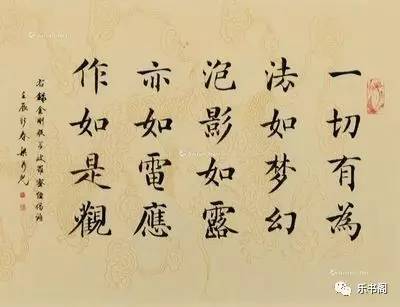 一切有為
法如梦幻
泡影如露
亦如電應
作如是觀
右録金剛般若波羅蜜經偈語
壬辰新春
乐书阁